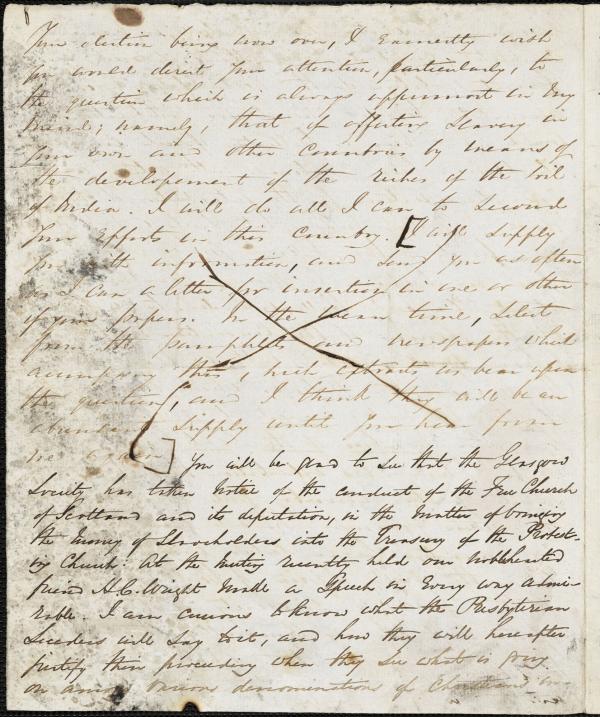 Your election being now over, I earnestly wish
you would direct your attention, particularly, to
the question which is always uppermost in my
mind; namely, that of affecting Slavery in
your own and other Countries by means of
the developement of the riches of the soil
of India. I will do all I can to second
your efforts in this Country. [I will supply
you with information, and send you as often
as I can a letter for insertion in one or other
of your papers. In the mean time, select
from the pamphlets and newspapers which
accompany this, such extracts as bear upon
the question, and I think they will be an
abundant supply until you hear from
me again.] You will be glad to see that the Glasgow
Society has taken notice of the conduct of the Free Church
of Scotland and its deputation, in the matter of bringing
the money of Slaveholders into the Treasury of the Protest-
ing Church. At the meeting recently held our noblehearted
friend H.C. Wright made a Speech in every way admi-
rable. I am curious to know what the Presbyterian
Seceders will say to it, and how they will hereafter
justify their proceeding when they see what is going
on among various denominations of Christians in